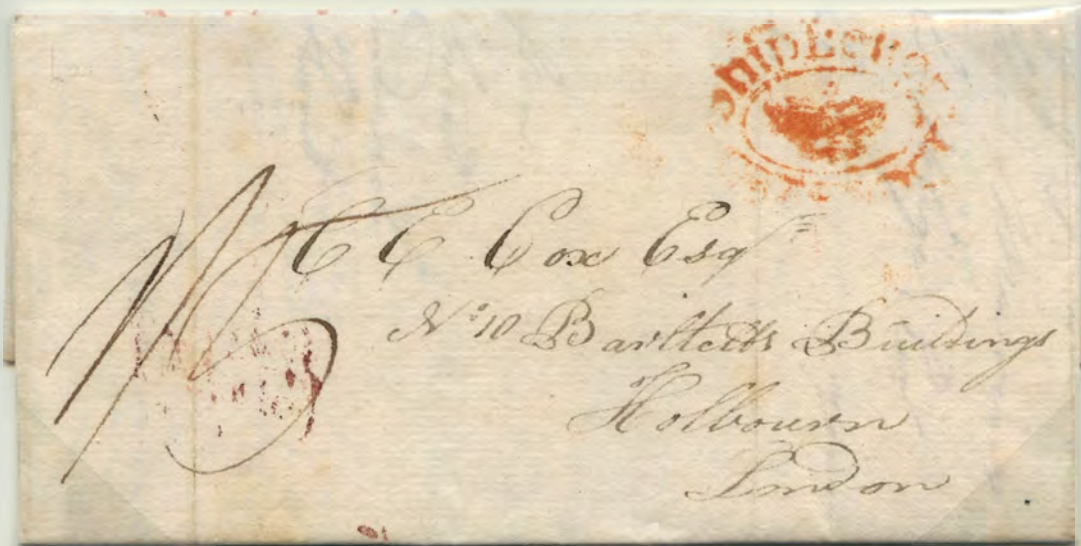 Ship Letter
1/5
C C Cox Esqr
No 10 Bartletts Buildings
Holbourn
London